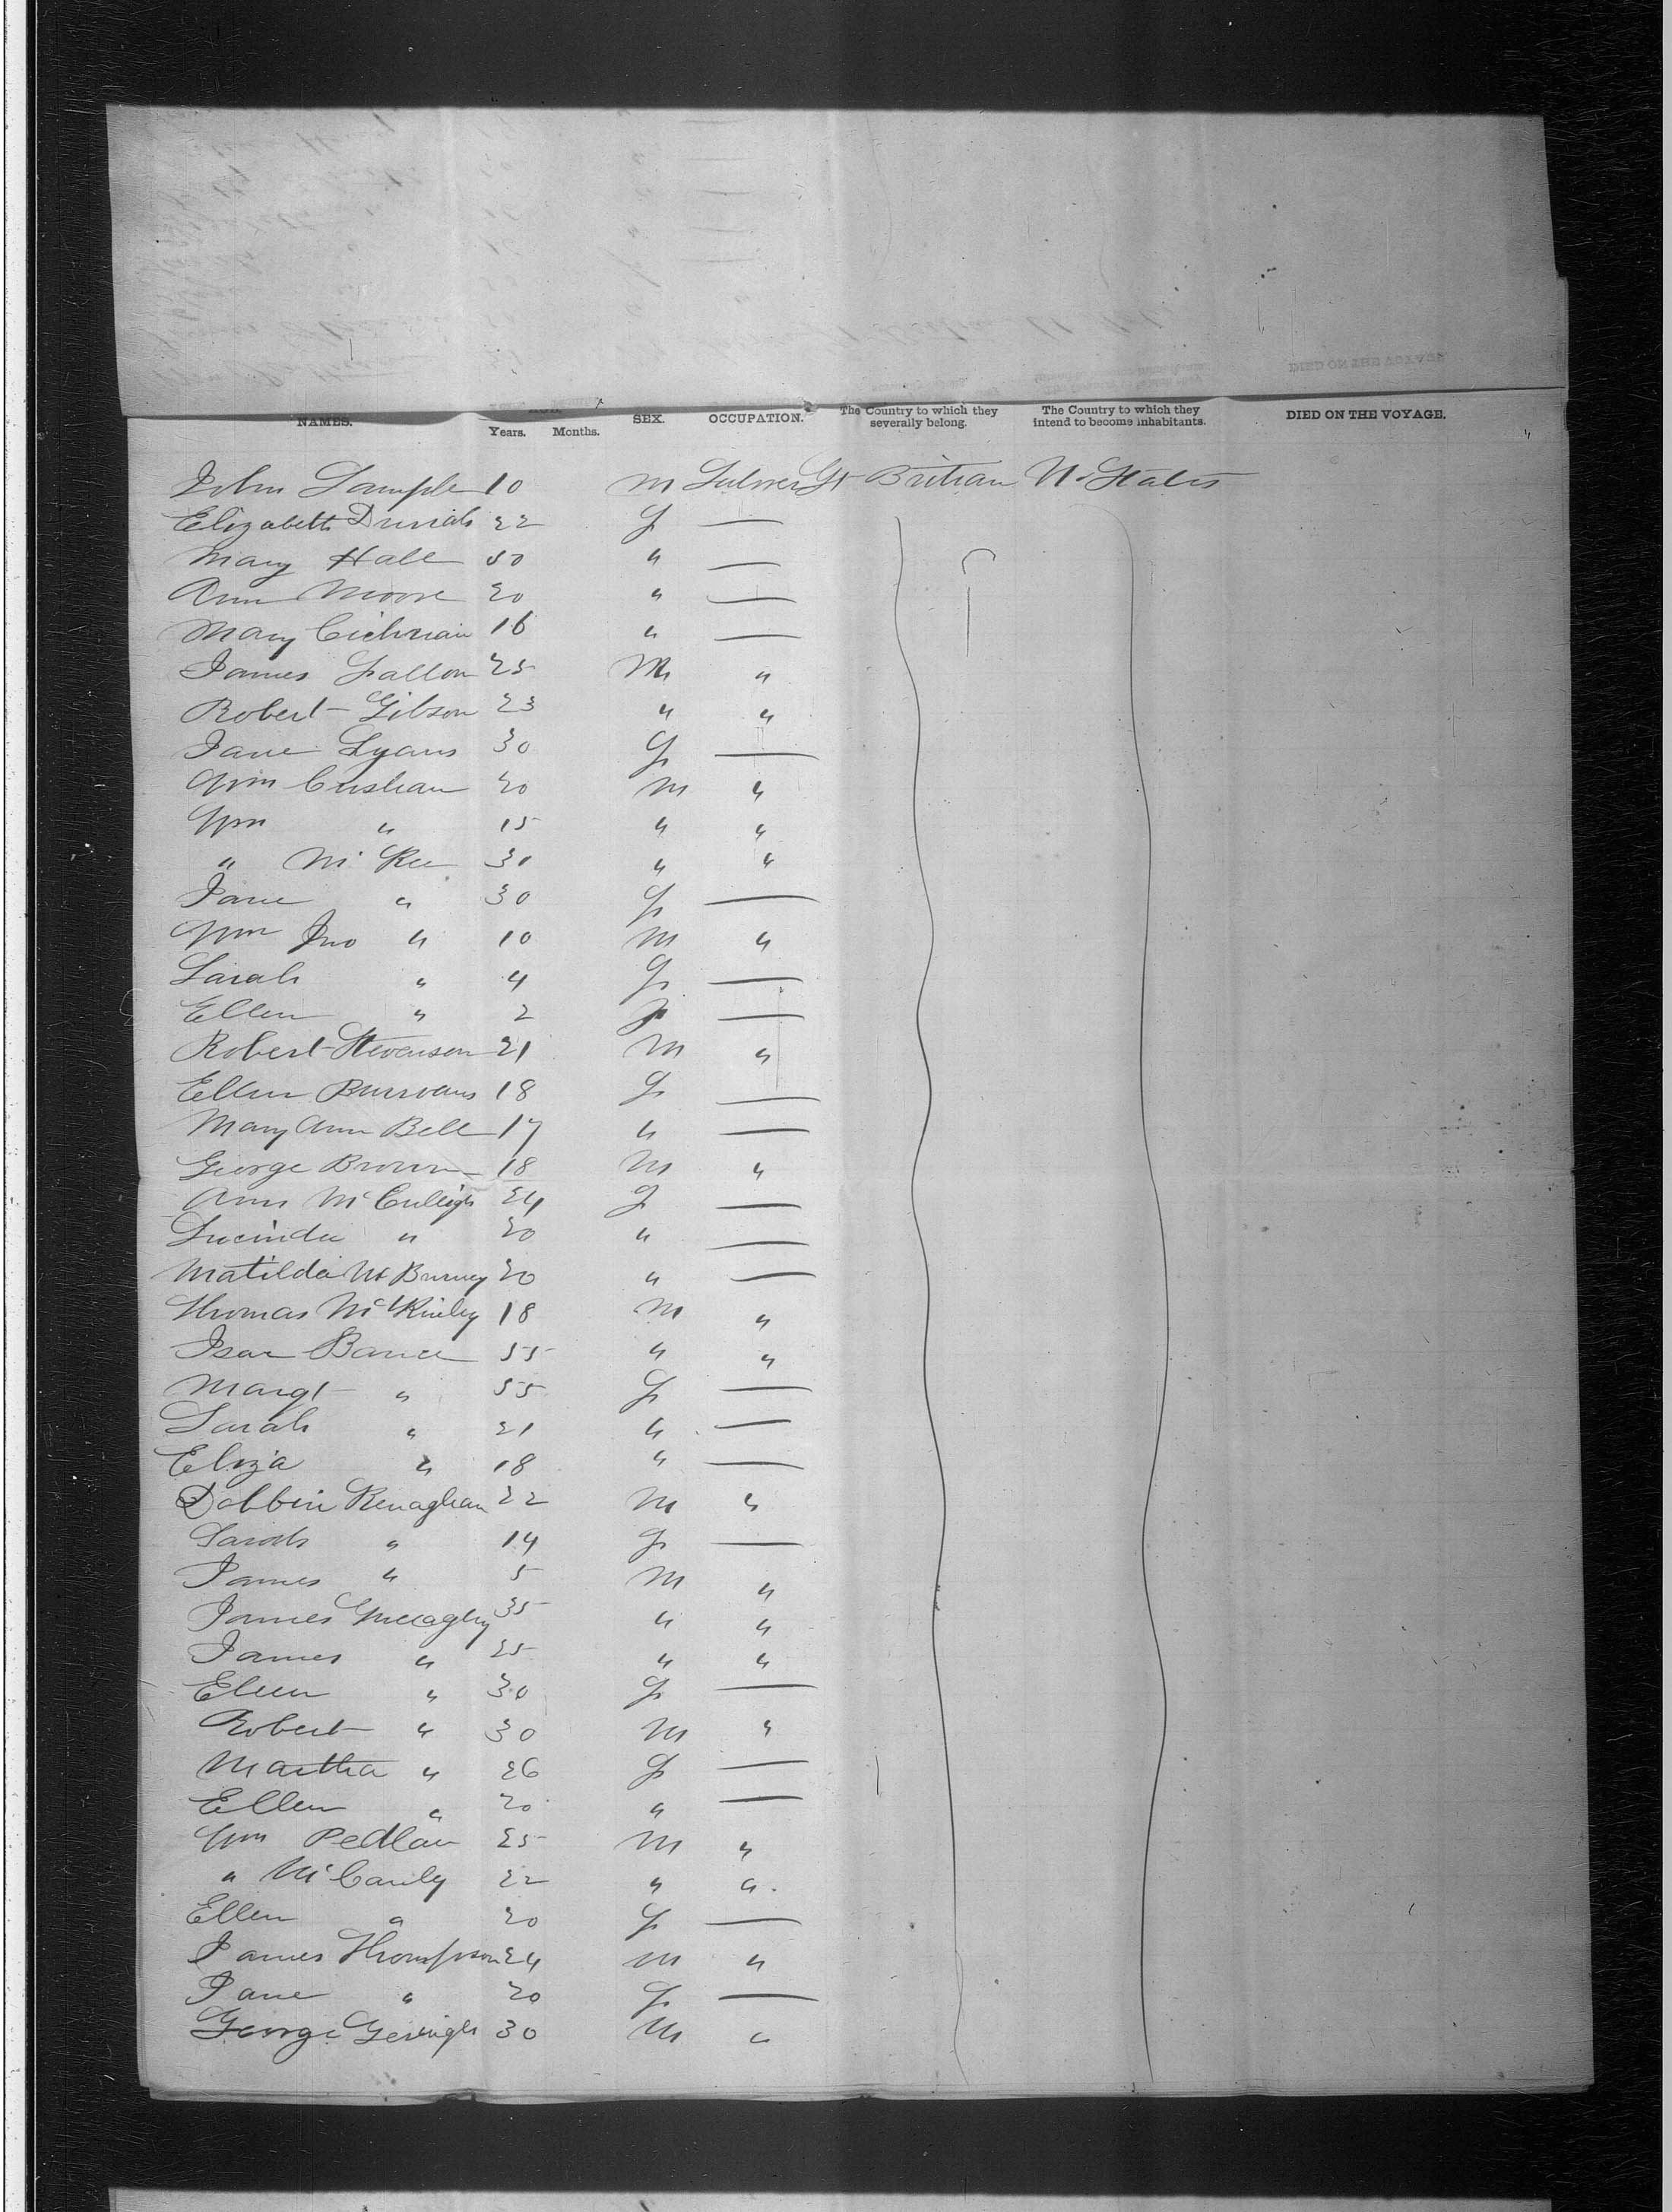 NAMES. Years. Months. SEX. OCCUPATION. The Country to which they severally belong. The Country to which they intend to become inhabitants. DIED ON THE VOYAGE.
John Sample 10 m Gt Britian U. States
Elizabeth 22 f —
Mary Hall 50 " —
Ann Moore 20 " —
Mary 16 " —
James Fallon 25 M "
Robert Gibson 23 " "
Jane Lyans 30 f —
Wm 20 m "
Wm " 15 " "
" Mc Kee 30 " "
Jane " 30 f —
Wm Jno " 10 m "
Sarah " 4 f —
Ellen " 2 f —
Robert Stevenson 21 m "
Ellen 18 f —
Mary Ann Bell 17 " —
George Brown 18 m "
Ann 24 f —
Lucinda " 20 " —
Matilda Mc Burney 20 " —
Thomas McKinley 18 m "
Isac 55 " "
Margt " 55 f —
Sarah " 21 " —
Eliza " 18 " —
Dobbin Renaghan 22 m "
Sarah " 14 f —
James " 5 m "
James 35 " "
James " 25 " "
Ellen " 30 f —
Robert " 30 m "
Martha " 26 f —
Ellen " 20 " —
Wm Pedlan 25 m "
" McCauly 22 " "
Ellen " 20 f —
James Thompson 24 m "
Jane " 20 f —
George 30 m "